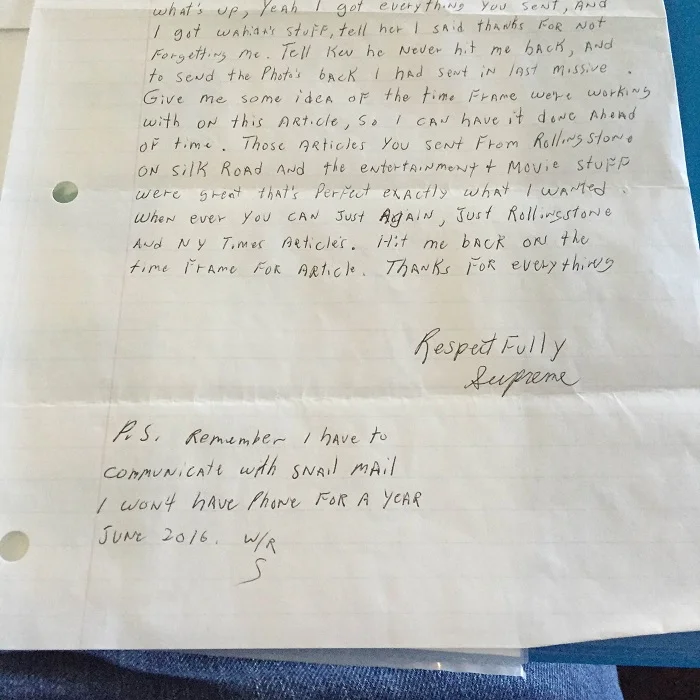 what's up, Yeah I got everything you sent, And
I got Wahida's stuff, tell her I said thanks FOR NOT
Forgetting me. Tell Kev he Never hit me bAck, AND
to send the Photo's bAck I had sent iN lAst missive.
Give me some ideA OF the time FRAme we're working
with ON this ARticle, so I CAN hAve it done AheAd
OF time. Those ARticles You sent From Rolling Stone
ON Silk ROAD AND the entertAinment + Movie stuFF
were great that's PerFect exActly whAt I wANted.
When ever You CAN Just AgAiN, Just Rollingstone
AND NY Times ARticles. Hit me bAck ON the
time FRAme FOR ARticle. THANKS FOR everything
RespectFully
Supreme
P.S. Remember I HAve to
COMMUNICAte with SNAil MAil
I WON'T hAve Phone FOR A YEAR
JUNE 2016. W/R
S